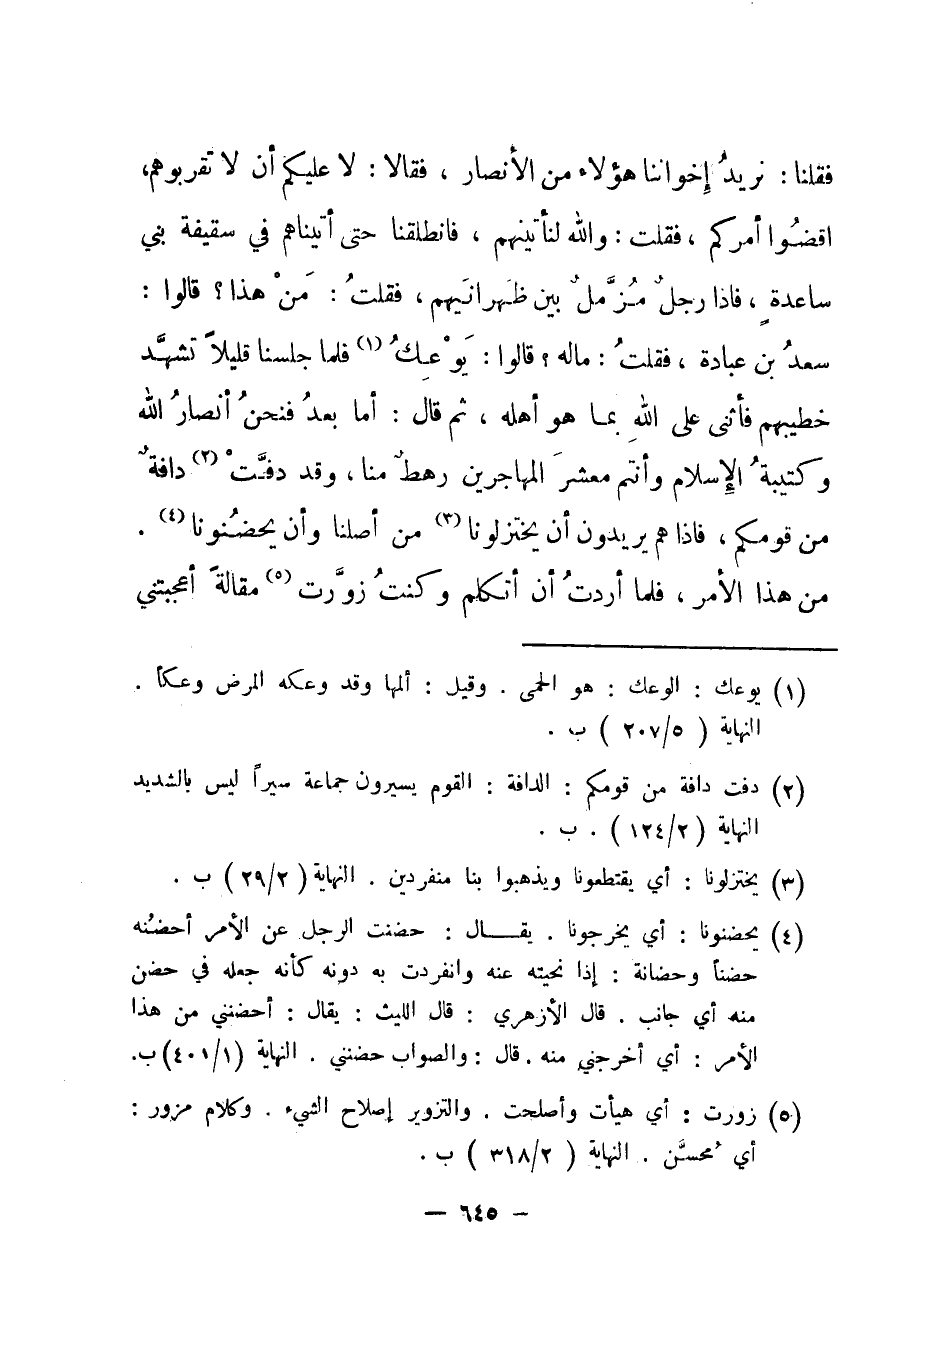 فقلنا : نريدُ إخواننا هؤلاء من الأنصار ، فقالا : لا عليكم أن لا تقربوهم،
اقضُوا أمركم ، فقلت : والله لنأتينهم ، فانطلقنا حتى أتيناهم في سقيفة بني
ساعدةٍ ، فاذا رجلٌ مُزَّملٌ بين ظهرانَيهم ، فقلتُ : مَنْ هذا ؟ قالوا :
سعدُ بن عبادة ، فقلتُ : ماله ؟ قالوا : يَوْعِكُ (١) فلما جلسنا قليلاً تشهَّد
خطيبهم فأثنى على اللهِ بما هو أهله ، ثم قال : أما بعدُ فنحنُ أنصارُ الله
وكتيبةُ الإسلام وأنتم معشرَ المهاجرين رهطٌ منا ، وقد دفَّتْ (٢) دافةٌ
من قومكم ، فاذا هم يريدون أن يختزلونا (٣) من أصلنا وأن يحضُنونا (٤) .
من هذا الأمر ، فلما أردتُ أن أتكلم وكنتُ زوَّرت (٥) مقالةً أعجبتني
(١) يوعك : الوعك : هو الحمى . وقيل : ألمها وقد وعكه المرض وعكاً .
النهاية ( ٢٠٧/٥ ) ب .
(٢) دفت دافة من قومكم : الدافة : القوم يسيرون جماعة سيراً ليس بالشديد
النهاية ( ١٢٤/٢ ) . ب .
(٣) يختزلونا : أي يقتطعونا ويذهبوا بنا منفردين . النهاية ( ٢٩/٢ ) ب .
(٤) يحضنونا : أي يخرجونا . يقــال : حضنت الرجل عن الأمر أحضُنه
حضناً وحضانة : إذا نحيته عنه وانفردت به دونه كأنه جعله في حضن
منه أي جانب . قال الأزهري : قال الليث : يقال : أحضنني من هذا
الأمر : أي أخرجني منه . قال : والصواب حضنني . النهاية (٤٠١/١) ب.
(٥) زورت : أي هيأت وأصلحت . والتزوير إصلاح الشيء . وكلام مزور :
أي مُحسَّن . النهاية ( ٣١٨/٢ ) ب .
- ٦٤٥ -